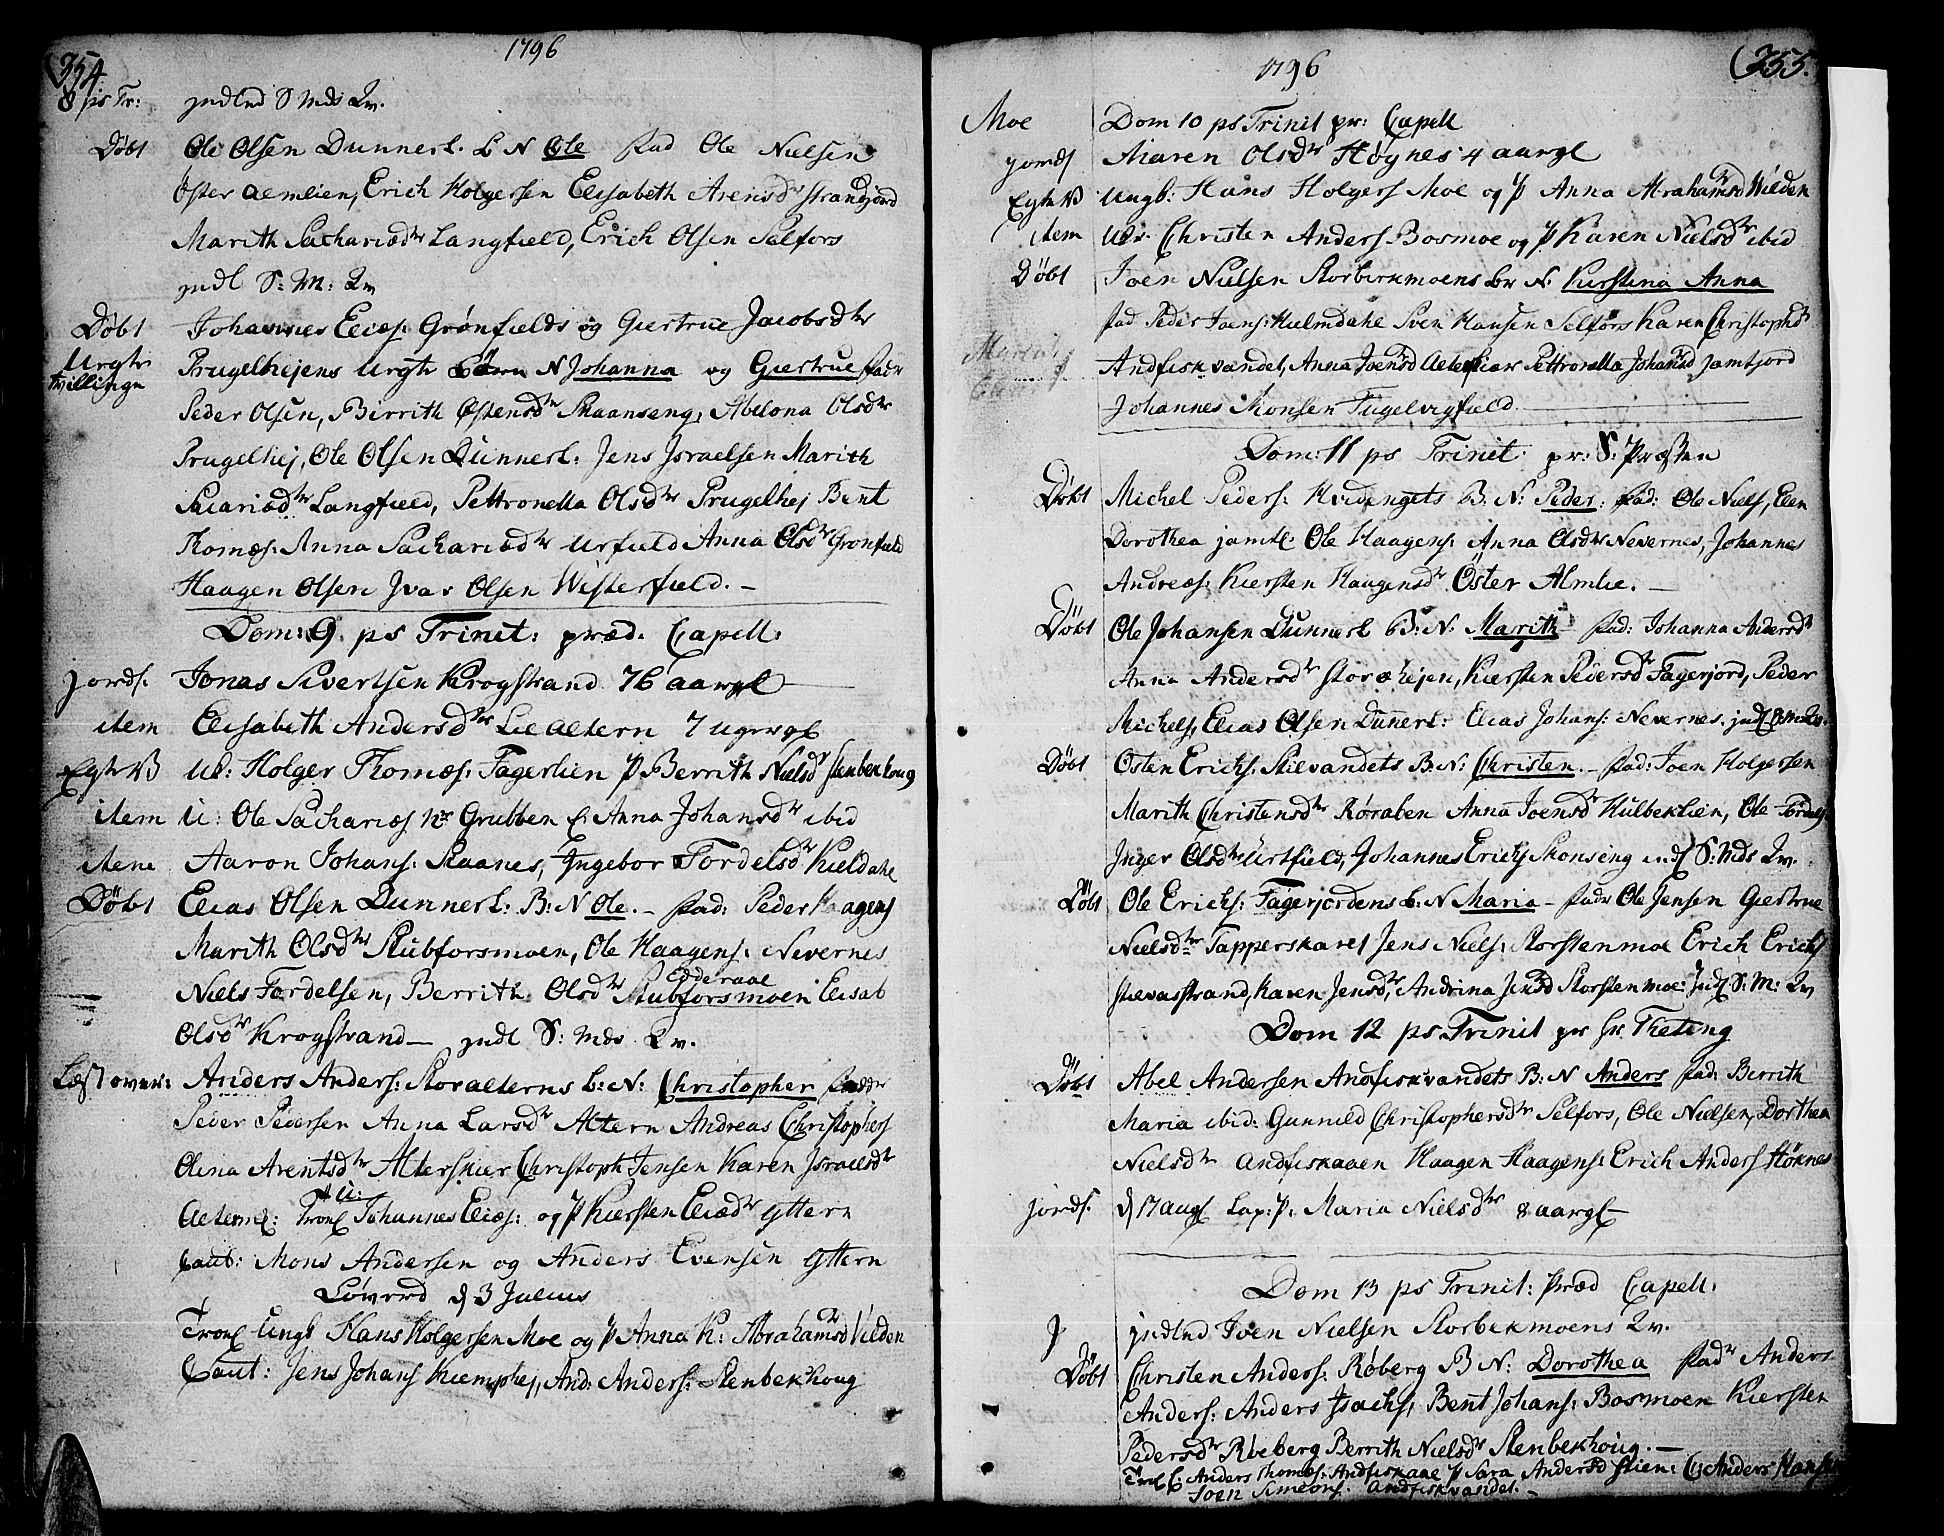 (354
1796
8 ps Tr: jndled S Mds Qv.
Døbt Ole Olsen Dunnerl. B N Ole Fad Ole Nielsen
Øster Aemlien, Erich Holgersen Elisabeth Arensdtr Strandjord
Marith Sachariædtr Langfield, Erich Olsen Selfors
jndl S: M: Qv
Døbt Johannes Eliæs: Grønfields og Giertrue Jacobsdtr
Urgte tvillinge Prugelhejens Urgte Børn N Johanna og Giertrue Fadr
Peder Olsen, Birrith Østensdtr Skaanseng, Abelona Olsdtr
Prugelhej, Ole Olsen Dunnerl: Jens Jsraelsen Marith
Sacariædtr Langfield, Pettronella Olsdtr Prugelhej Bent
Thomæs: Anna Sachariædtr Urfield Anna Olsdtr Grønfield
Haagen Olsen Jvar Olsen Wisterfield. –
Dom: 9 ps Trinit: præd. Capell:
jords. Jonas Sivertsen Krogstrand 76 aar gl
item Elisabeth Andersdtr Lie Altern 7 uger gl
Egte V Ud: Holger Thomæs: Fagerlien P Berrith Nielsdtr Stenbekhoug
item U: Ole Sachariæs Grubben E: Anna Johansdtr ibid
item Aaron Johans: Raanes, Jngebor Tordelsdtr Kieldahl
Døbt Elias Olsen Dunnerl: B: N Ole. – Fad: Peder Haagens
Marith Olsdtr Stubforsmoen, Ole Haagens: Nevernes
Niels Tordelsen, Berrith Olsdtr Edderaae Stubforsmoen Elisab
Olsdtr Krogstrand – jndl S: Mds Qv.
Læst over: Anders Anders: Storalterns B: N: Christopher Fadder
Peder Pedersen Anna Larsdtr Altern Andreas Christophers
Olina Arentsdtr Alterskier Christoph Jensen Karen Jsraelsdtr
Trol: U: Johannes Eliæs: og P Kiersten Eliædtr Yttern
Caut: Mons Andersen og Anders Evensen Yttern
Løverd d 3 Julius
Trol Ungk Hans Holgersen Moe og P Anna K: Abrahamsd Vilden
Caut: Jens Johans Kiemphej, And: Anders: Stenbekhoug
1796
(355.
Moe Dom 10 ps Trinit pr: Capell
jords Maren Olsdtr Høgnes 4 aar gl
Egte V Ungk: Hans Holgers Moe og P Anna Abrahamsd Wilden
item Udr. Christen Anders Bosmoe og P Karen Nielsdtr ibid
Døbt Joen Nielsen Storbekmoens br N: Kierstina Anna
Fad Peder Joens: Hulmdahl Sven Hansen Selfors Karen Christophdtr
Andfiskvandet, Anna Joensd Alterskiær Pettronella Johansd Jamtjord
Johannes Monsen Fugelvigfield.
Dom: 11 ps Trinit: pr: S: Præsten
Døbt Michel Peders: Hvidengets B: N: Peder. Fad: Ole Niels, Elen
Dorothea jamtl: Ole Haagens: Anna Olsdtr Nevernes, Johannes
Andreæs: Kiersten Haagensdtr Öster Almlie. –
Døbt Ole Johansen Dunnerl B: N: Marith Fad: Johanna Andersdtr
Anna Andersdtr Storæhejen, Kiersten Pedersd Fagerjord, Peder
Michels, Elias Olsen Dunnerl: Elias Johans: Nevernes. jndl S m: Qv.
Døbt Østen Erichs: Stilvandets B: N: Christen. – Fad: Joen Holgersen
Marith Christensdtr Røraben Anna Joensdtr Hulbeklien, Ole Tordels
Jnger Olsdtr Urtfield, Johannes Erichs Skonseng indl S: Mds Qv.
Døbt Ole Erichs: Fagerjordens b: N Maria – Fadr Ole Jensen Giertrue
Nielsdtr Tapperskaret Jens Niels: Storstenmoe Erich Erichs
Stilvasstrand, Karen Jensdtr, Andrina Jensd Storstenmoe: Jndl S: M: Qv
Dom 12 ps Trinit pr Hr Theting
Døbt Abel Andersen Andfiskvandets B: N Anders Fad: Berrith
Maria ibid: Gunnild Christophersdtr Selfors, Ole Nielsen, Dorthea
Nielsdtr Andfiskaaen Haagen Haagens: Erich Anders Høknes
jords. d 17 aug Lap: P: Maria Nielsdtr 8 aar gl –
Dom 13 ps Trinit: Præd Capell:
jndled Joen Nielsen Storbekmoens Qv.
Døbt Christen Anders: Røberg B N: Dorothea Fadr Anders
Anders: Anders Jsachs, Bent Johans: Bosmoen Kiersten
Pedersdtr Røeberg Berrith Nielsdtr Stenbekhoug. –
Trol E: Anders Thomæs: Andfiskaae P Sara Andersd Stien: C: Anders Hans
Joen Simeons: Andfiskvandet. –